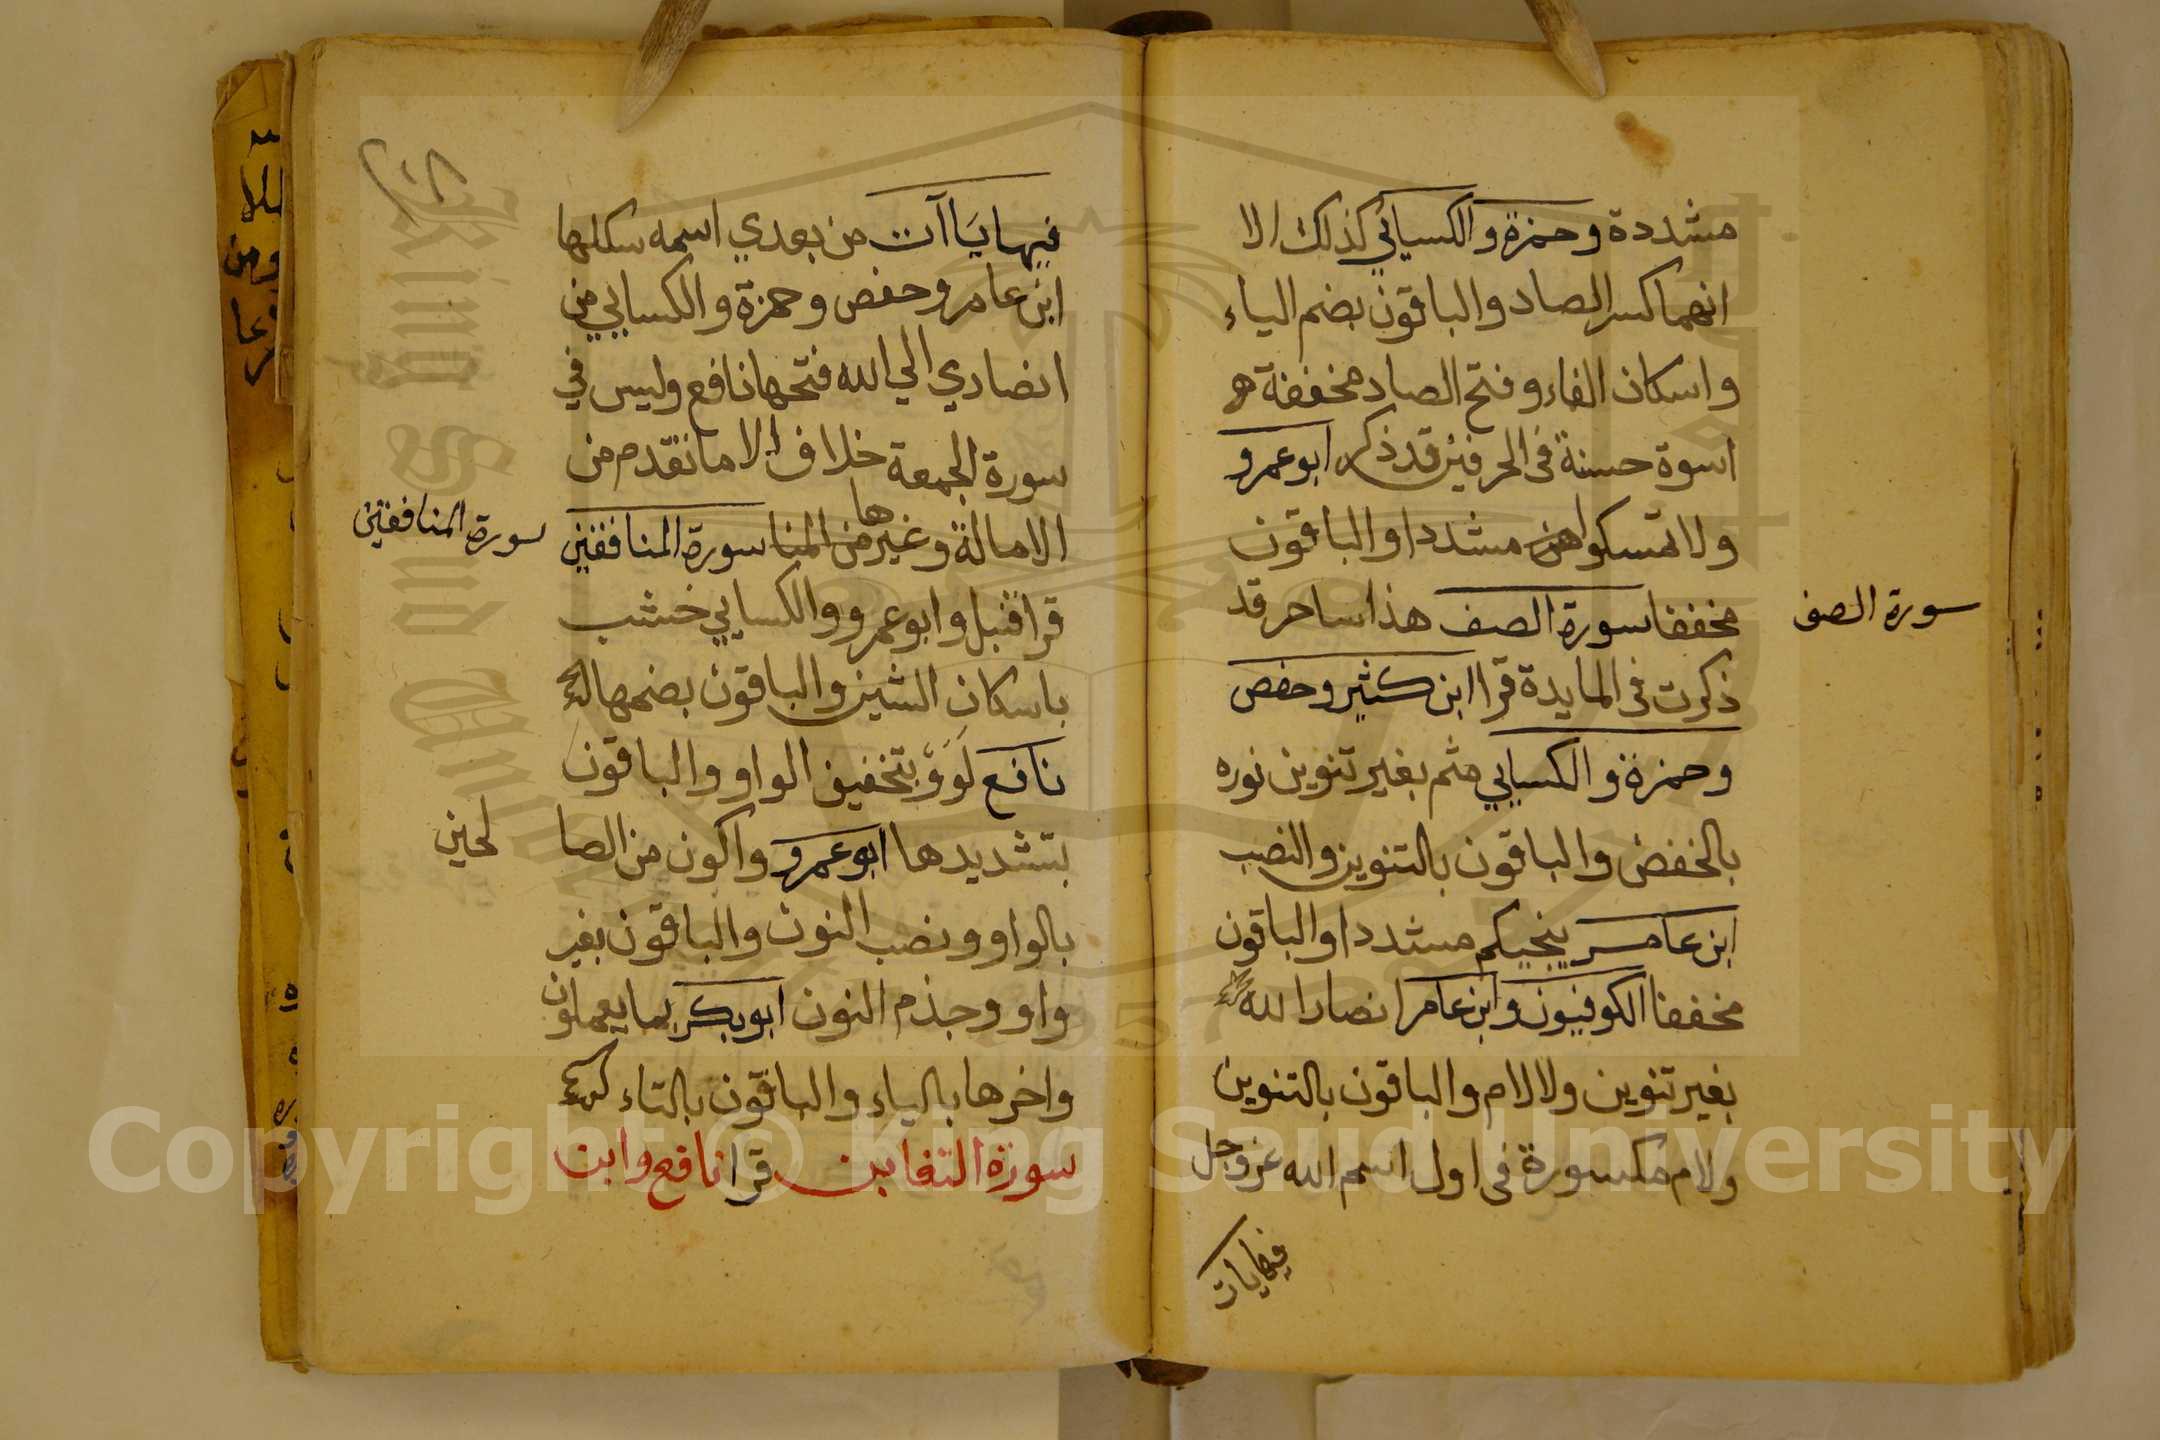 مشددة وحمزة والكسائي كذلك الا
انهما كسرا لصاد والباقون بضم الياء
واسكان الفاء وفتح الصاد مخففة
اسوة حسنة في الحرفين قد ذكر ابو عمرو
ولا تمسكوا مشددا والباقون
مخففا سورة الصف هذا ساحر قد
سورة الصف
ذكرت في المايدة قرا ابن كثير وحفص
وحمزة والكسايي متم بغير تنوين نوره
بالخفض والباقون بالتنوين والنصب
ابن عامر ينجيكم مشددا والباقون
مخففا الكوفيون وابن عامر انصار الله
بغير تنوين ولا لام والباقون بالتنوين
ولام مكسورة في اول اسم الله عز وجل
فيها يات
فيها يا آت من بعدي اسمه سكلها
ابن عامر وحفص وحمزة والكسايي من
انصاري الي الله فتحها نافع وليس في
سورة الجمعة خلاف الا ما تقدم من
الامالة وغيرها سورة المنافقين
سورة المنافقين
قرا قنبل وابو عمرو والكسايي خشب
باسكان الشين والباقون بضمها
نافع لووا بتخفيف الواو والباقون
بتشديدها ابو عمرو واكون من الصا
لحين
بالواو ونصب النون والباقون بغير
واو وجذم النون ابو بكر بما يعملون
واخرها بالياء والباقون بالتاء
سورة التغابن قرا نافع وابن
Copyright © King Saud University
King Saud University
1957